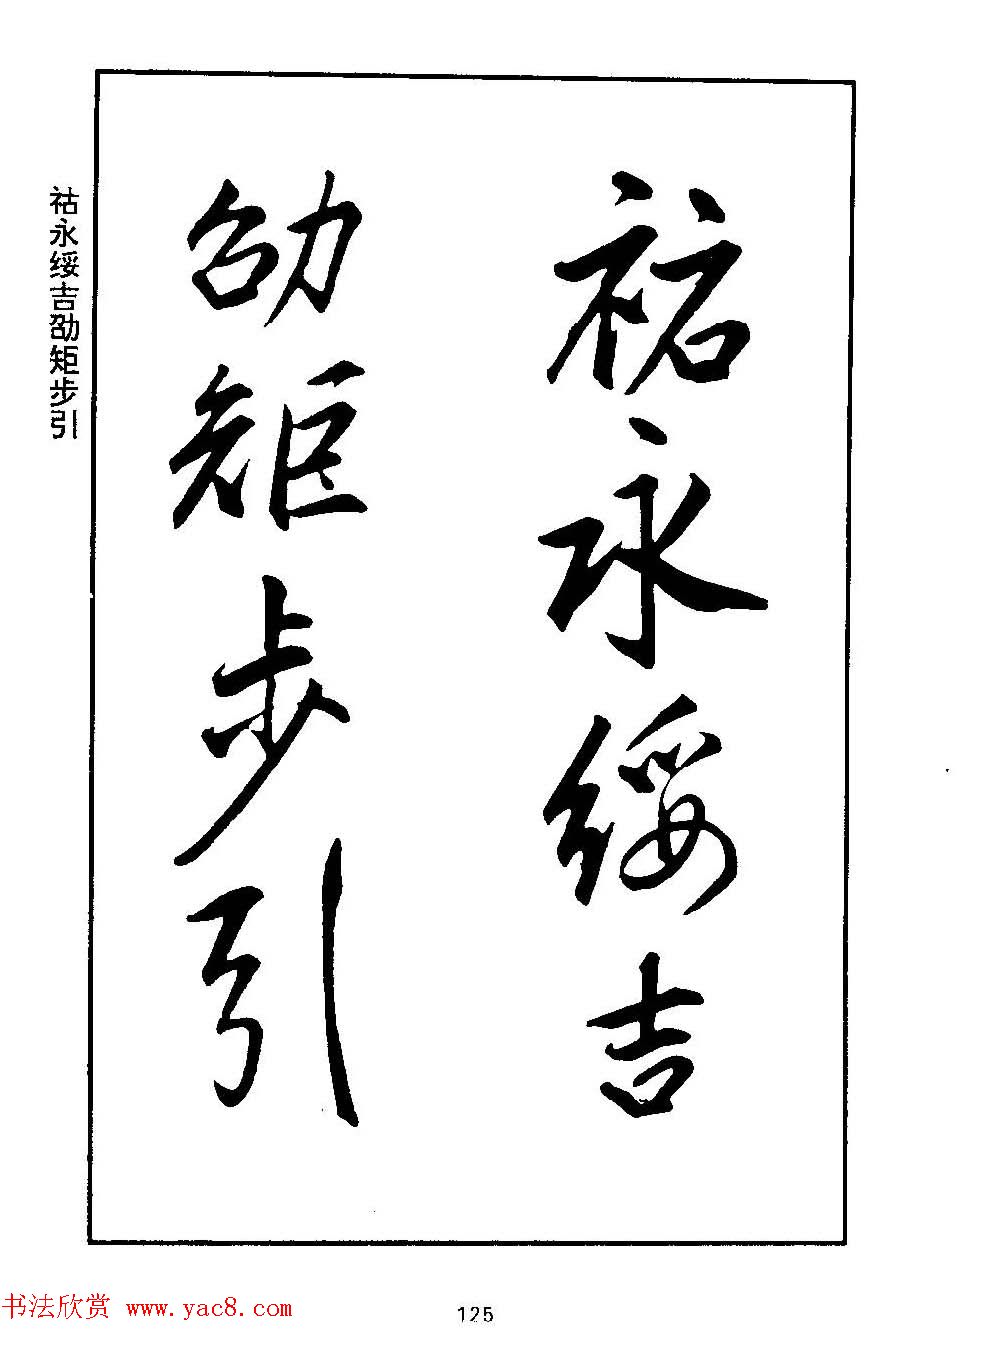 祐永綏吉
劭矩步引
祜永绥吉劭矩步引
书法欣赏 www.yac8.com
125